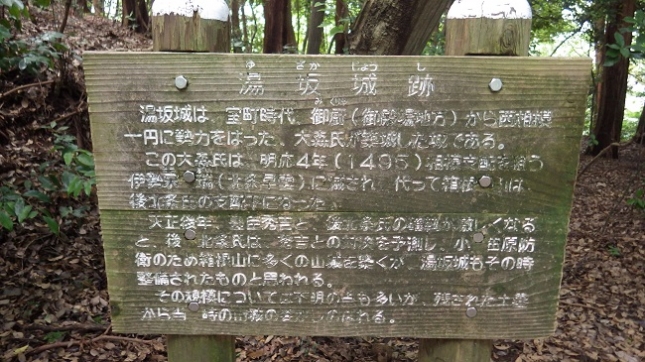 ゆ ざか じょう し
湯坂城跡
湯坂城は、室町時代、御厨(御殿場地方)から西相模
一円に勢力をはった、大森氏が築城した城である。
この大森氏は、明応4年(1495)相模支配を狙う
伊勢 瑞(北条早雲)に滅され、代って箱根 は、
後北条氏の支配下になった。
天正後年、豊臣秀吉と、後北条氏の確執が激しくなる
と、後北条氏は、秀吉との対決を予測し、小田原防
衛のため箱根山に多くの山城を築くが、湯坂城もその時
整備されたものと思われる。
その規模については不明の点も多いが、残された土塁
から当時の山城の がしのばれる。